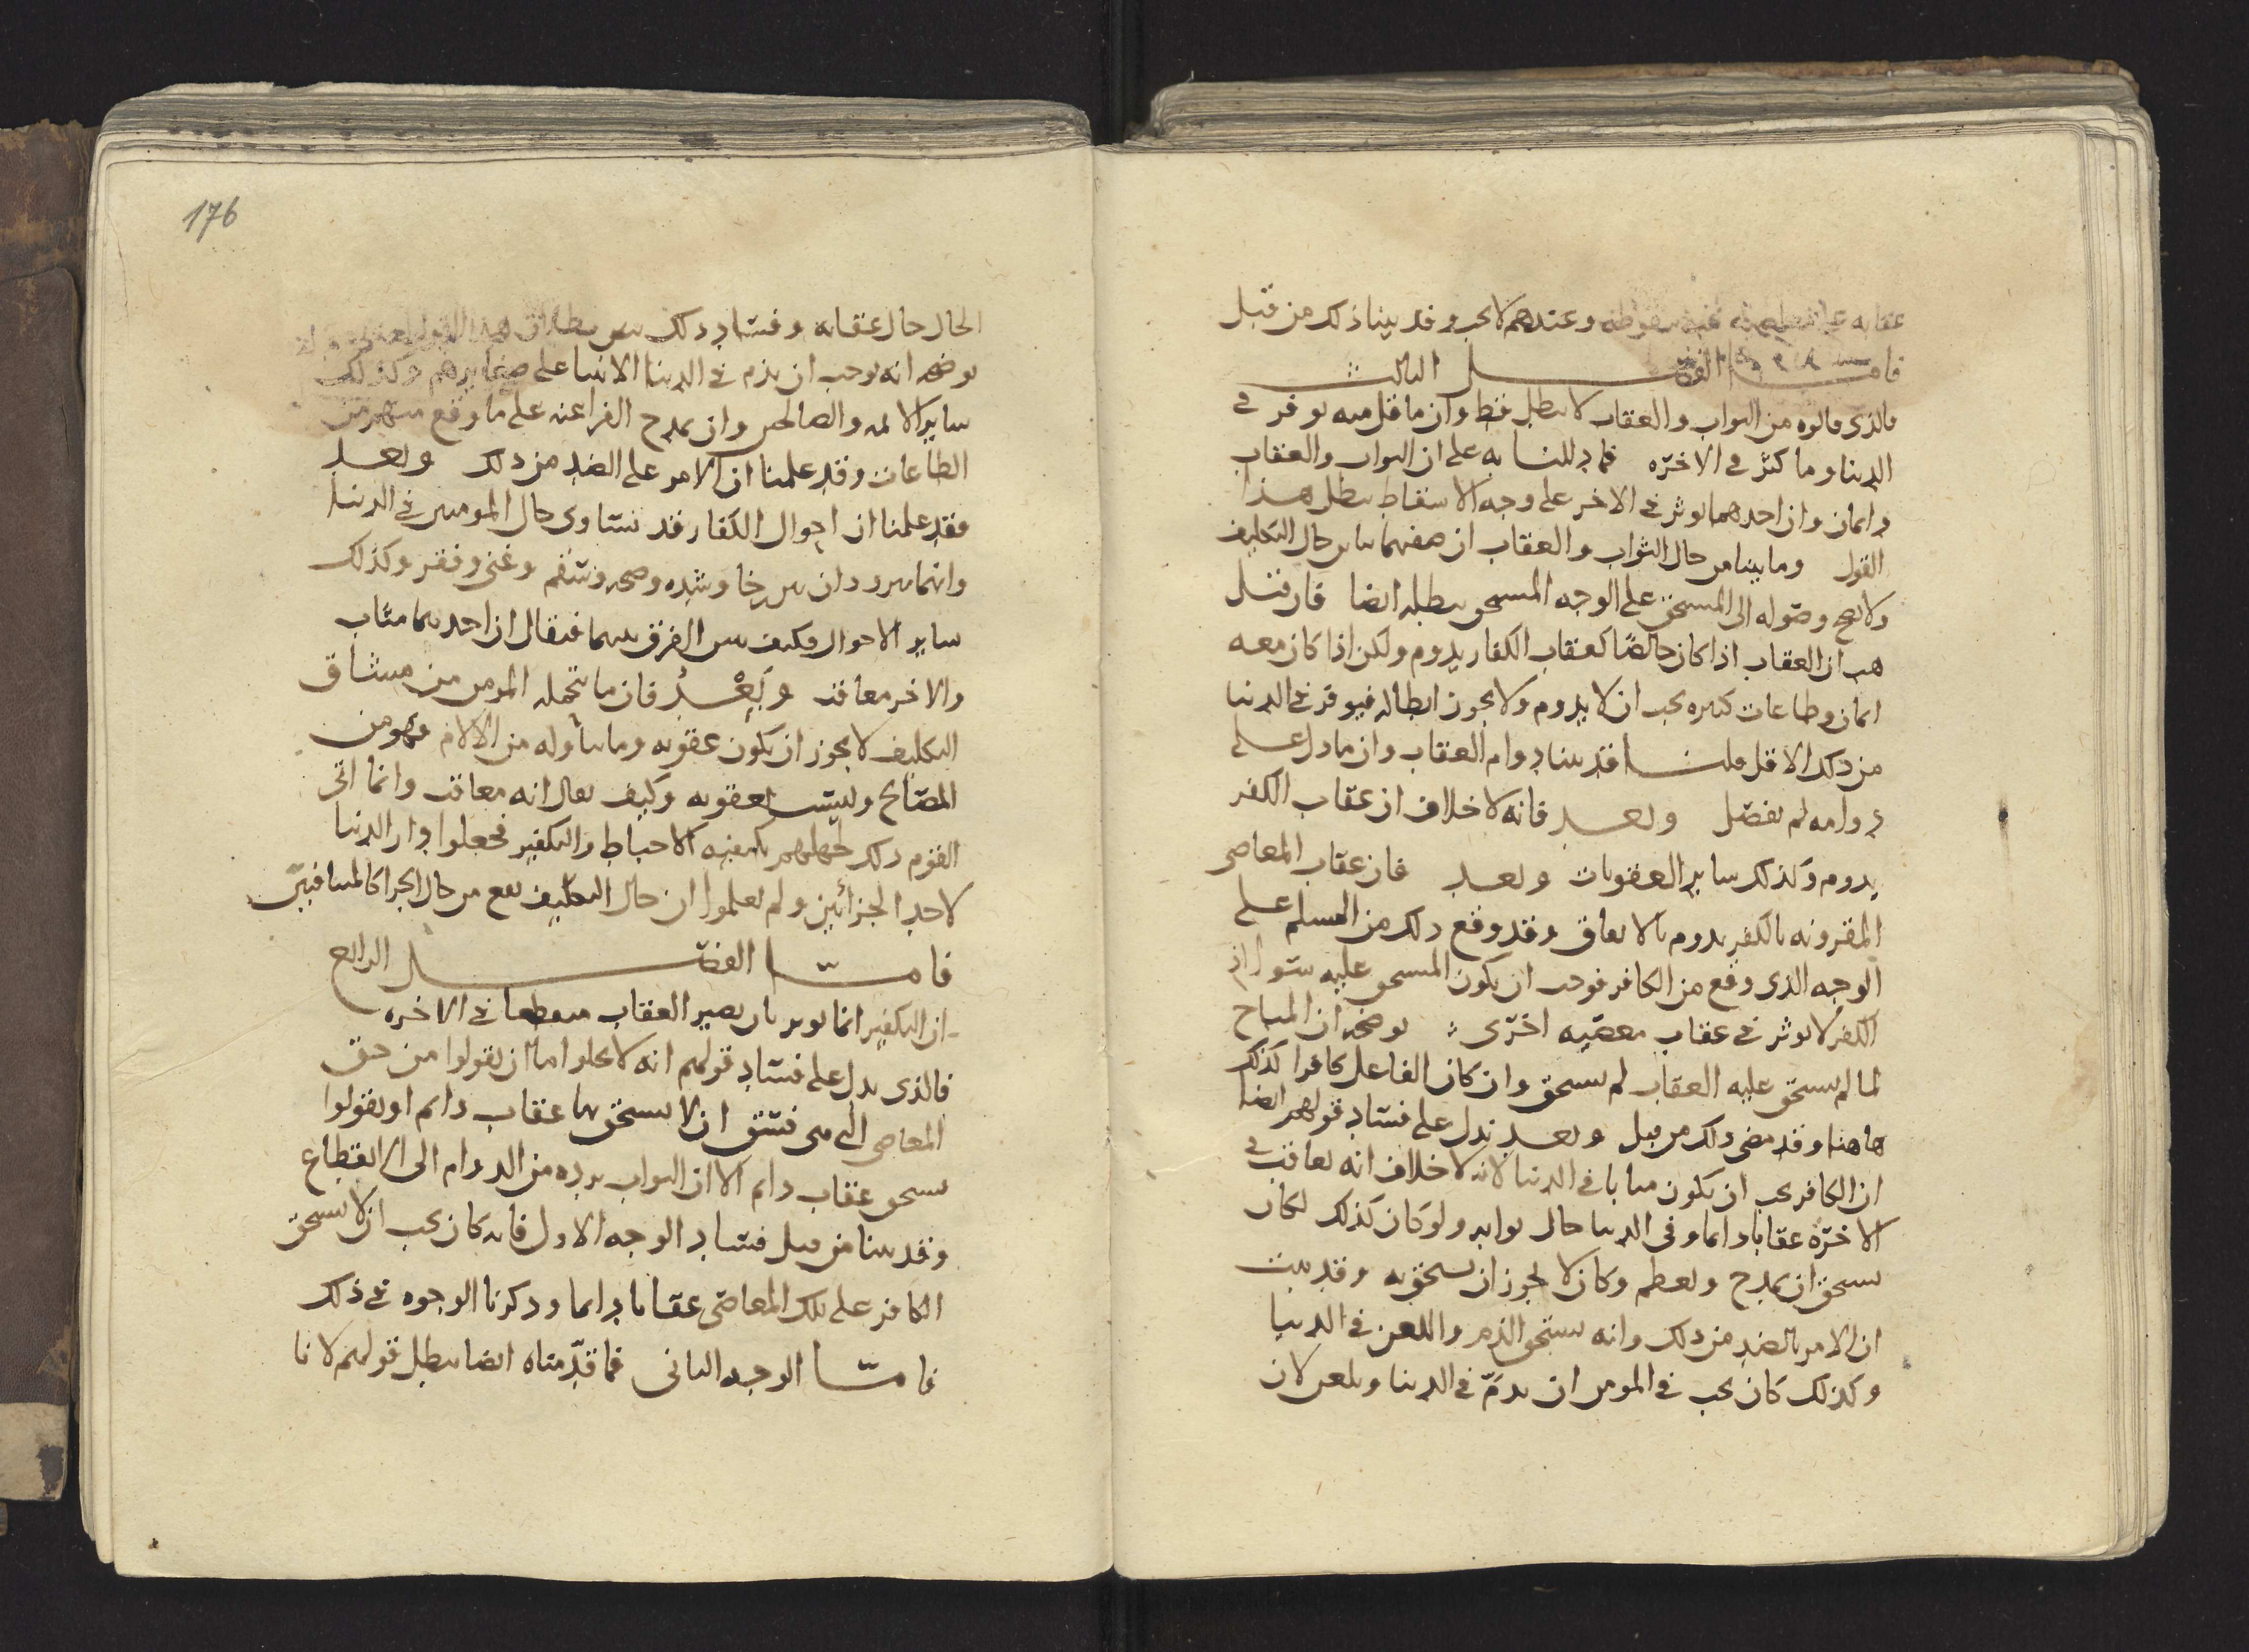 عقابه وعندهم لا يجب وقد بينا ذلك من قبل
فاما الفصل الثالث
فالذي قالوه من الثواب والعقاب لا يبطل قط وان ما قل منه يوفر في
الدنيا وما كثر في الاخرة فما دللنا به على ان الثواب والعقاب
دايمان وان احدهما يوثر في الاخر على وجه الاسقاط يبطل هذا
القول وما بينا من حال الثواب والعقاب ان صفتهما تباين حال التكليف
ولا يصح وصوله الى المستحق على الوجه المستحق يبطله ايضا فان قيل
هب ان العقاب اذا كان خالصا كعقاب الكفار يدوم ولكن اذا كان معه
ايمان وطاعات كثيره يجب ان لا يدوم ولا يجوز ابطاله فيوفر في الدنيا
من ذلك الاقل قلنا قد بينا دوام العقاب وان ما دل على
دوامه لم يفصل وبعد فانه لا خلاف ان عقاب الكفر
يدوم وكذلك ساير العقوبات وبعد فان عقاب المعاصي
المقرونه بالكفر يدوم بالاتفاق وقد وقع ذلك من المسلم على
الوجه الذي وقع من الكافر فوجب ان يكون المستحق عليه سوا اذ
الكفر لا يوثر في عقاب معصيه اخرى يوضحه ان المباح
لما لم يستحق عليه العقاب لم يستحق وان كان الفاعل كافرا كذلك
هاهنا وقد مضى ذلك من قبل وبعد يدل على فساد قولهم ايضا
ان الكافر يجب ان يكون مثابا في الدنيا لانه لا خلاف انه يعاقب في
الاخرة عقابا دايما وفي الدنيا حال ثوابه ولو كان كذلك لكان
يستحق ان يمدح ويعظم وكان لا يجوز ان يستخف به وقد ثبت
ان الامر بالضد من ذلك وانه يستحق الذم واللعن في الدنيا
وكذلك كان يجب في المومن ان يذم في الدنيا ويلعن لان
176
الحال حال عقابه وفساد ذلك يبين بطلان هذا القول
يوضحه انه يوجب ان يذم في الدنيا الانبيا على صغايرهم وكذلك
ساير الايمه والصالحين وان يمدح الفراعنه على ما وقع منهم من
الطاعات وقد علمنا ان الامر على الضد من ذلك وبعد
فقد علمنا ان احوال الكفار قد تساوي حال المومنين في الدنيا
وانهما يترددان بين رخا وشده وصحه وسقم وغنى وفقر وكذلك
ساير الاحوال فكيف يبين الفرق بينهما فيقال ان احدهما مثاب
والاخر معاقب وبعد فان ما يتحمله المومن من مشاق
التكليف لا يجوز ان يكون عقوبه وما يناوله من الالام فهو من
المصالح وليست بعقوبه وكيف يقال انه معاقب وانما اتي
القوم ذلك لجهلهم بكيفيه الاحباط والتكفير فجعلوا دار الدنيا
لاحد الجزائين ولم يعلموا ان حال التكليف يقع من حال الجزا كالمتنافيين
فاما الفصل الرابع
ان التكفير انما يوثر بان يصير العقاب منقطعا في الاخره
فالذي يدل على فساد قولهم انه لا يخلو اما ان يقولوا من حق
المعاصي التي هي فسق ان لا يستحق بها عقاب دايم او يقولوا
يستحق عقاب دايم الا ان الثواب يرده من الدوام الى الانقطاع
وقد بينا من قبل فساد الوجه الاول فانه كان يجب ان لا يستحق
الكافر على تلك المعاصي عقابا دايما وذكرنا الوجوه في ذلك
فاما الوجه الثاني فما قدمناه ايضا يبطل قولهم لانا